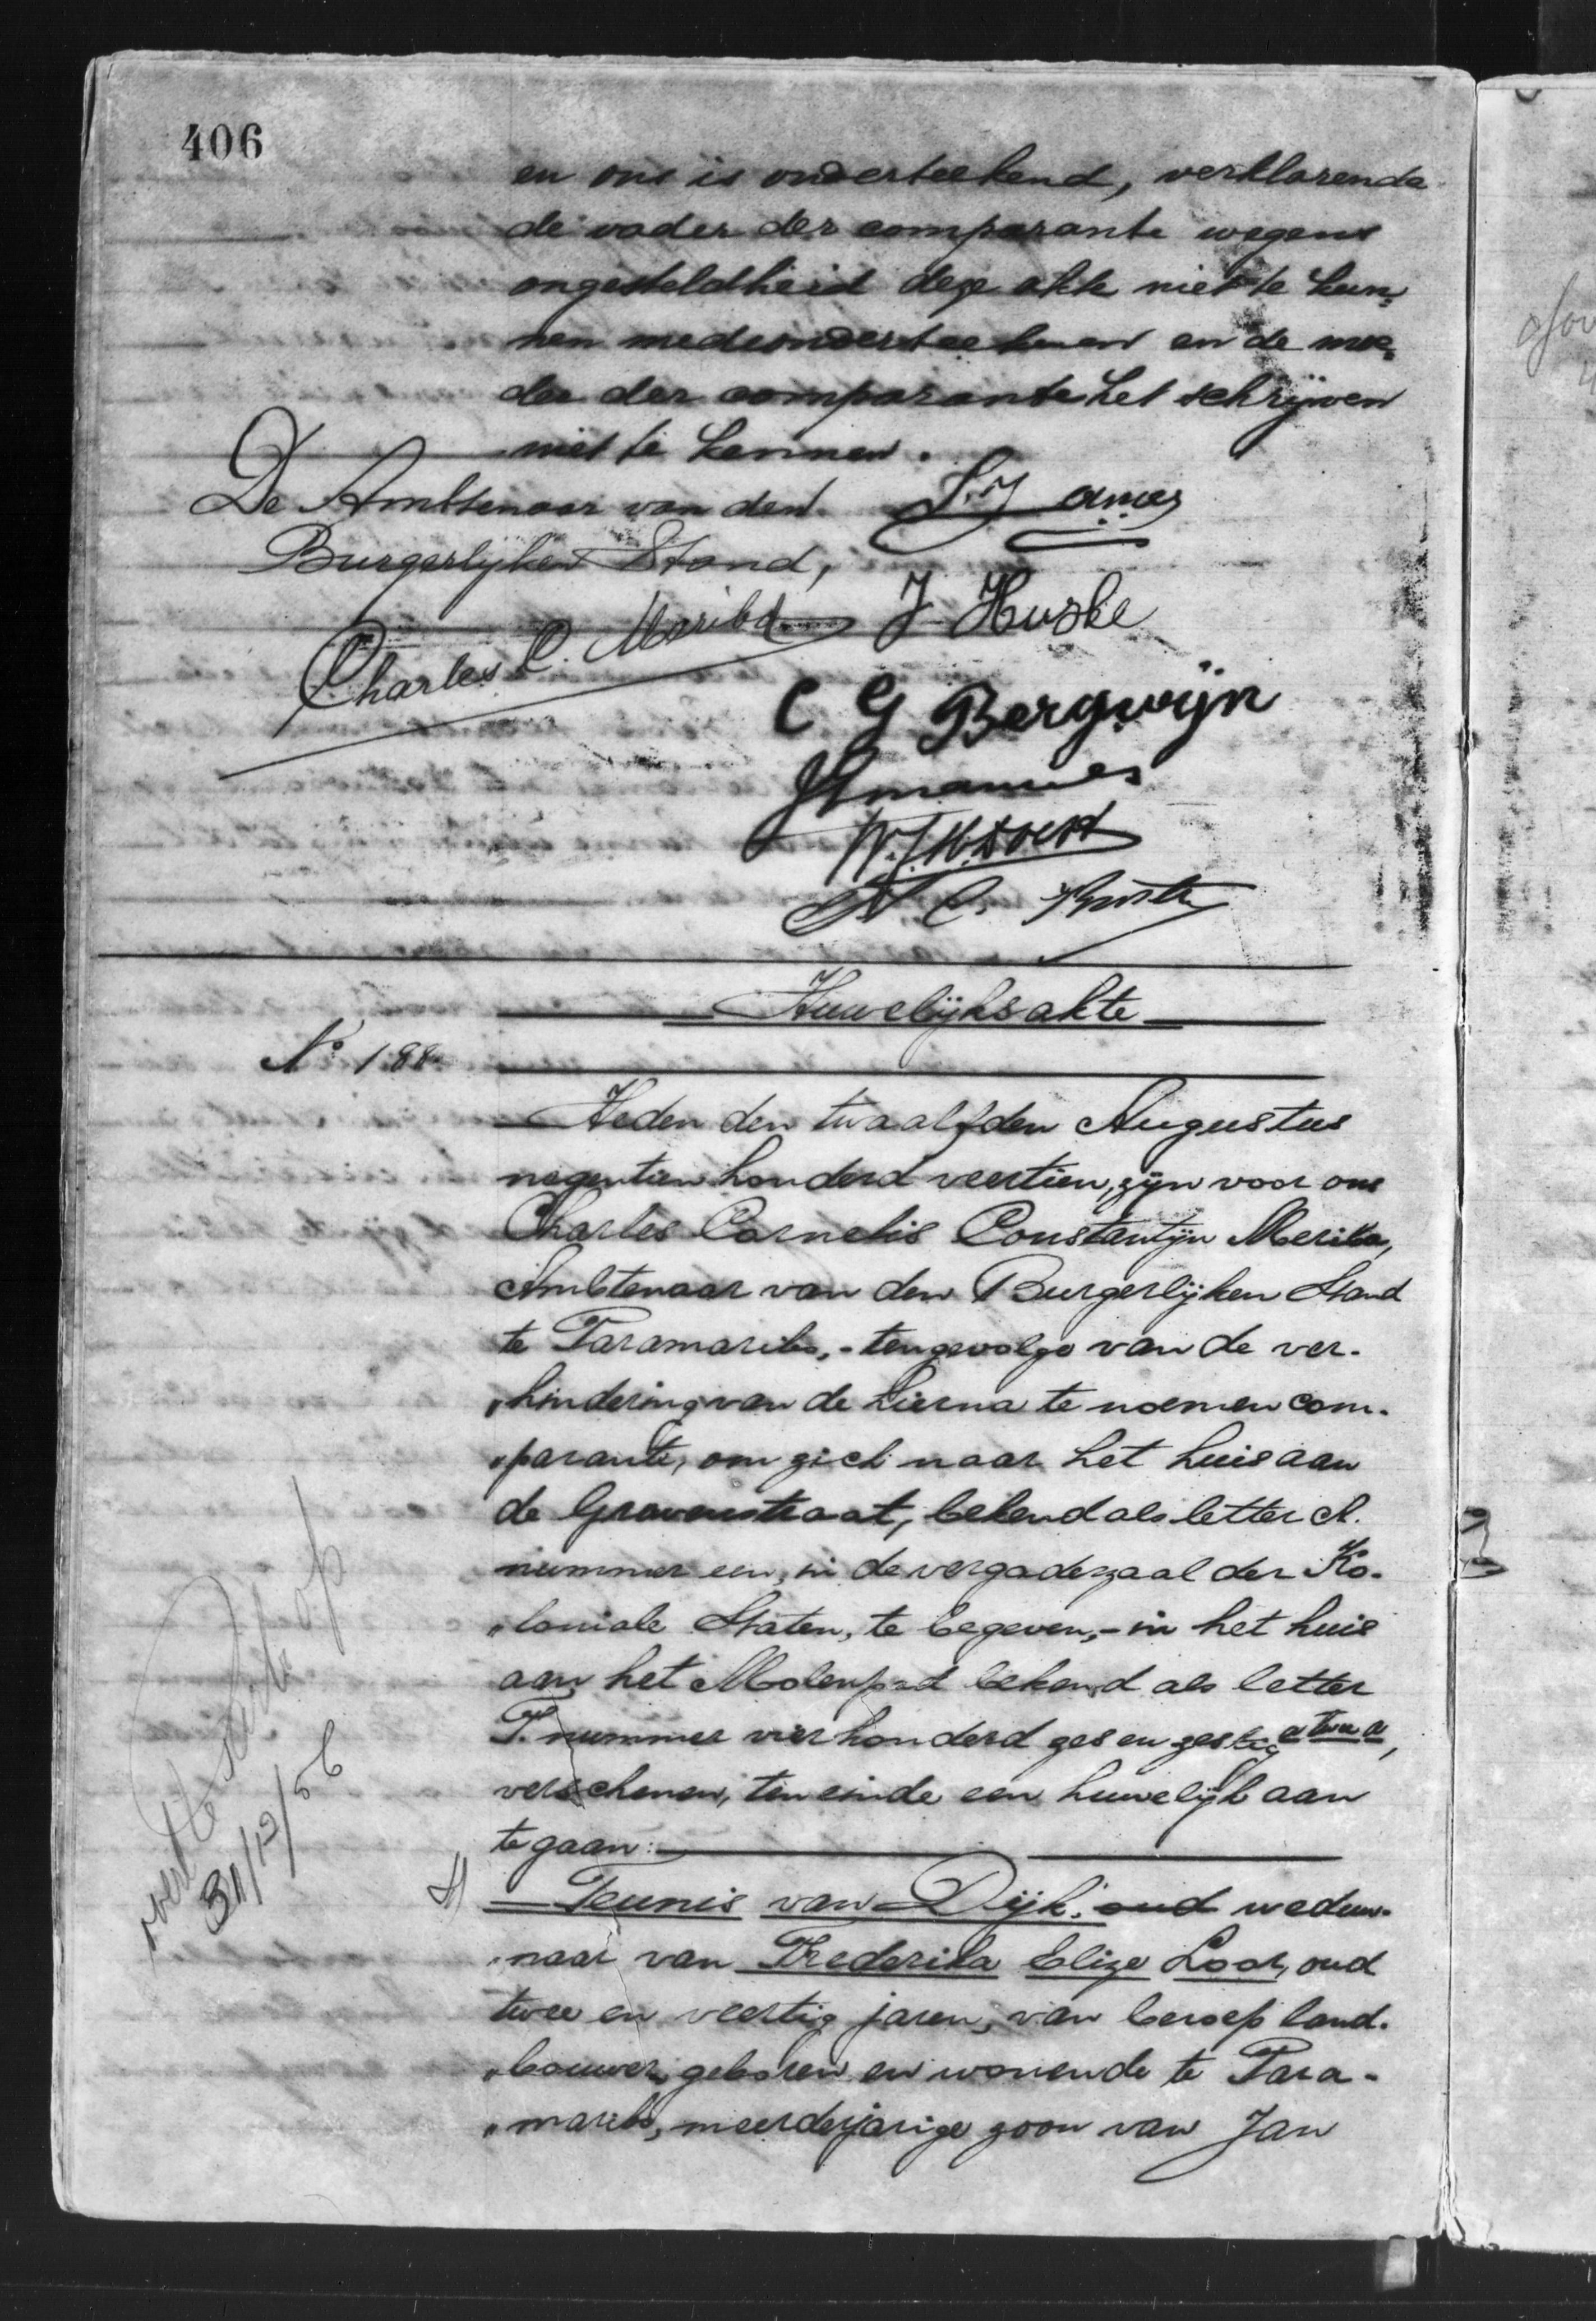 406
en ons is onderteekend, verklarende
de vader der comparante wegens
ongesteldheid deze akte niet te kun„
nen medeonderteekenen en de moe„
der der comparante het schrijven
niet te kennen.
De Ambtenaar van den
Burgerlijken Stand,
Charles C.
J. Huske
C G Bergwijn
C.
Huwelijksakte
No 188
Heden den twaalfden Augustus
negentienhonderd veertien, zijn voor ons
Charles Cornelis Constantijn Meriba,
Ambtenaar van den Burgerlijken Stand
te Paramaribo, - tengevolge van de ver-
„hindering van de hierna te noemen com-
„parante, om zich naar het huis aan
de Gravenstraat, bekend als letter A.
nummer een, in de vergaderzaal der Ko-
„loniale Staten, te begeven, - in het huis
aan het Molenpad bekend als letter
T. nummer vierhonderd zes en zestig a twee a,
verschenen, ten einde een huwelijk aan
te gaan:
Teunis van Dijk, oud weduw-
„naar van Frederika Elize Loor, oud
twee en veertig jaren, van beroep land-
„bouwer, geboren en wonende te Para-
„maribo, meerderjarige zoon van Jan
op
31/12/56